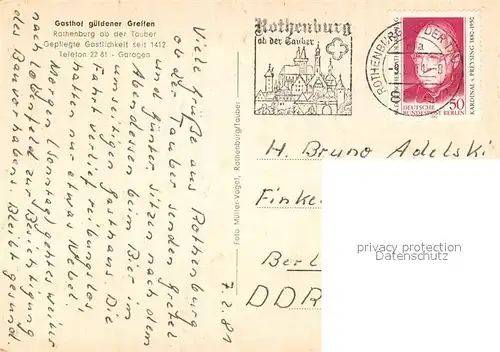 Gasthof güldener Greifen
Rothenburg ob der Tauber
Gepflegte Gastlichkeit seit 1412
Telefon 22 81 - Garagen
Viele Grüße aus Rothenburg
ob der Tauber senden Gretel
und Günter. Sitzen nach dem
Abendessen beim Bier im
umseitigen Gasthaus. Die
Fahrt verlief reibungslos,
hatten nur etwas Nebel.
Morgen (Sonntag) geht es weiter
nach zur Besichtigung
des Bauvorhabens. Bleibt gesund.
7.2.81
Foto Müller-Vogt, Rothenburg/Tauber
Rothenburg
ob der Tauber
ROTHENBURG OB DER
50
DEUTSCHE
BUNDESPOST BERLIN
KARDINAL v. PREYSING 1880-1950
H. Bruno Adelski
Finke
Berl
DDR
privacy protection
watermark